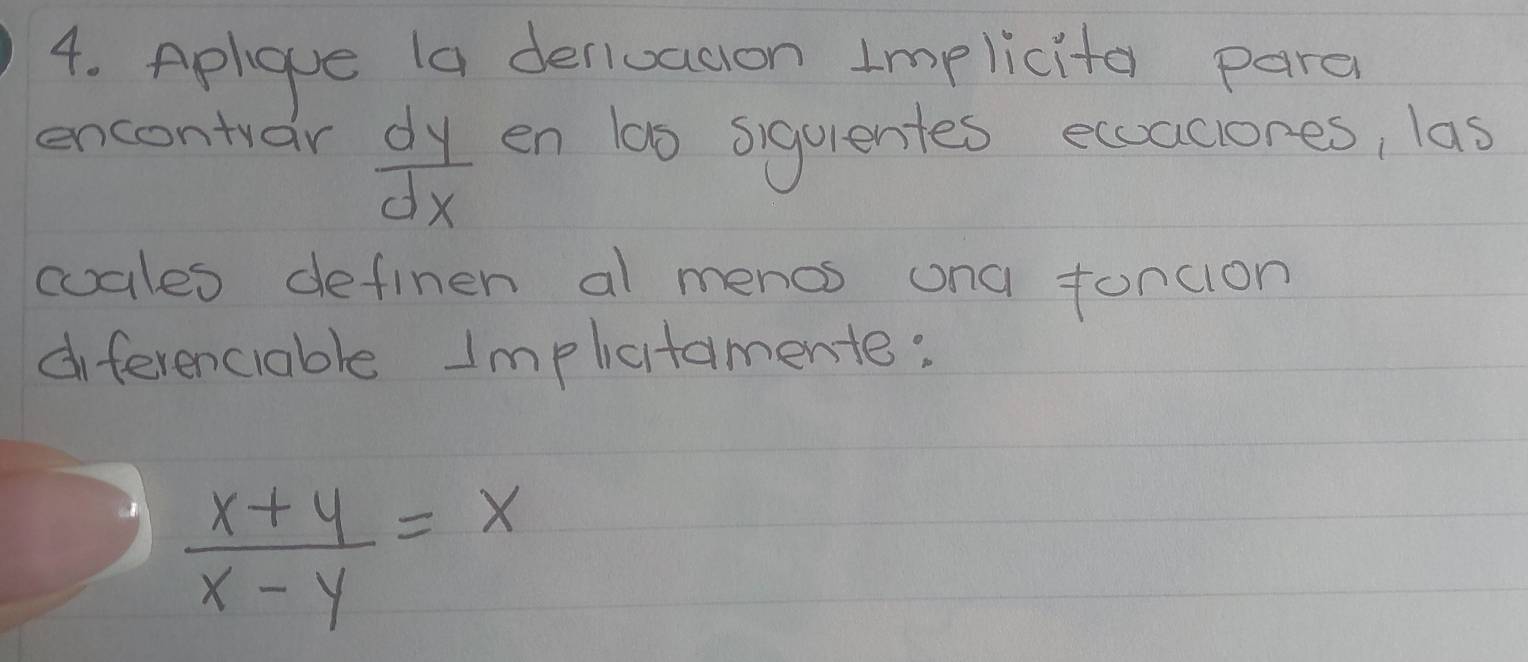 4. Aplique la derivacion Implicita para
encontrar dy/dx en las siguientes ecuaciones, las
cuales definen al menos una funcion
diferenciable Implicitamente:
x+y/x-y = x